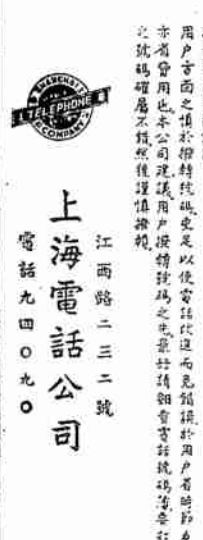 用户方面之慎於撥轉號碼更足以使電話代進而免錯誤於用户省時節力
亦省費用也本公司建議用户撥轉號碼之先最好請細查電話號碼簿
之號碼確屬不錯然後謹慎撥轉
SHANGHAI
TELEPHONE
COMPANY
江西路二三二號
上海電話公司
電話九四〇九〇